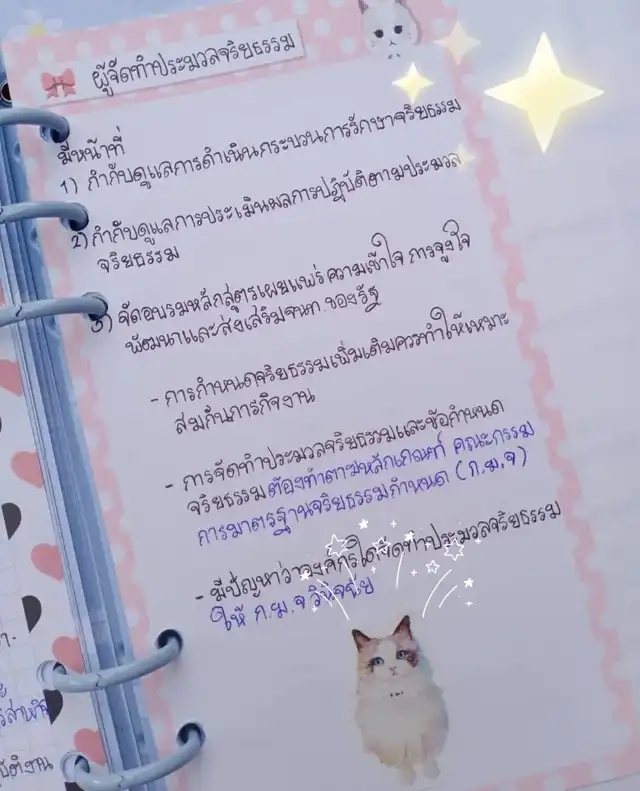 ผู้จัดทำประมวลจริยธรรม
มีหน้าที่
1) กำกับดูแลการดำเนินกระบวนการรักษาจริยธรรม
2) กำกับดูแลการประเมินผลการปฏิบัติตามประมวล
จริยธรรม
3) จัดอบรมหลักสูตรเผยแพร่ ความเข้าใจ การจูงใจ
พัฒนาและส่งเสริมจนท. ของรัฐ
- การกำหนดจริยธรรมเพิ่มเติมควรทำให้เหมาะ
สมกับภารกิจงาน
- การจัดทำประมวลจริยธรรมและข้อกำหนด
จริยธรรมต้องทำตามหลักเกณฑ์ คณะกรรม
การมาตรฐานจริยธรรมกำหนด (ก.ม.จ)
- มีปัญหาว่าองค์กรใดจัดทำประมวลจริยธรรม
ให้ ก.ม.จ วินิจฉัย